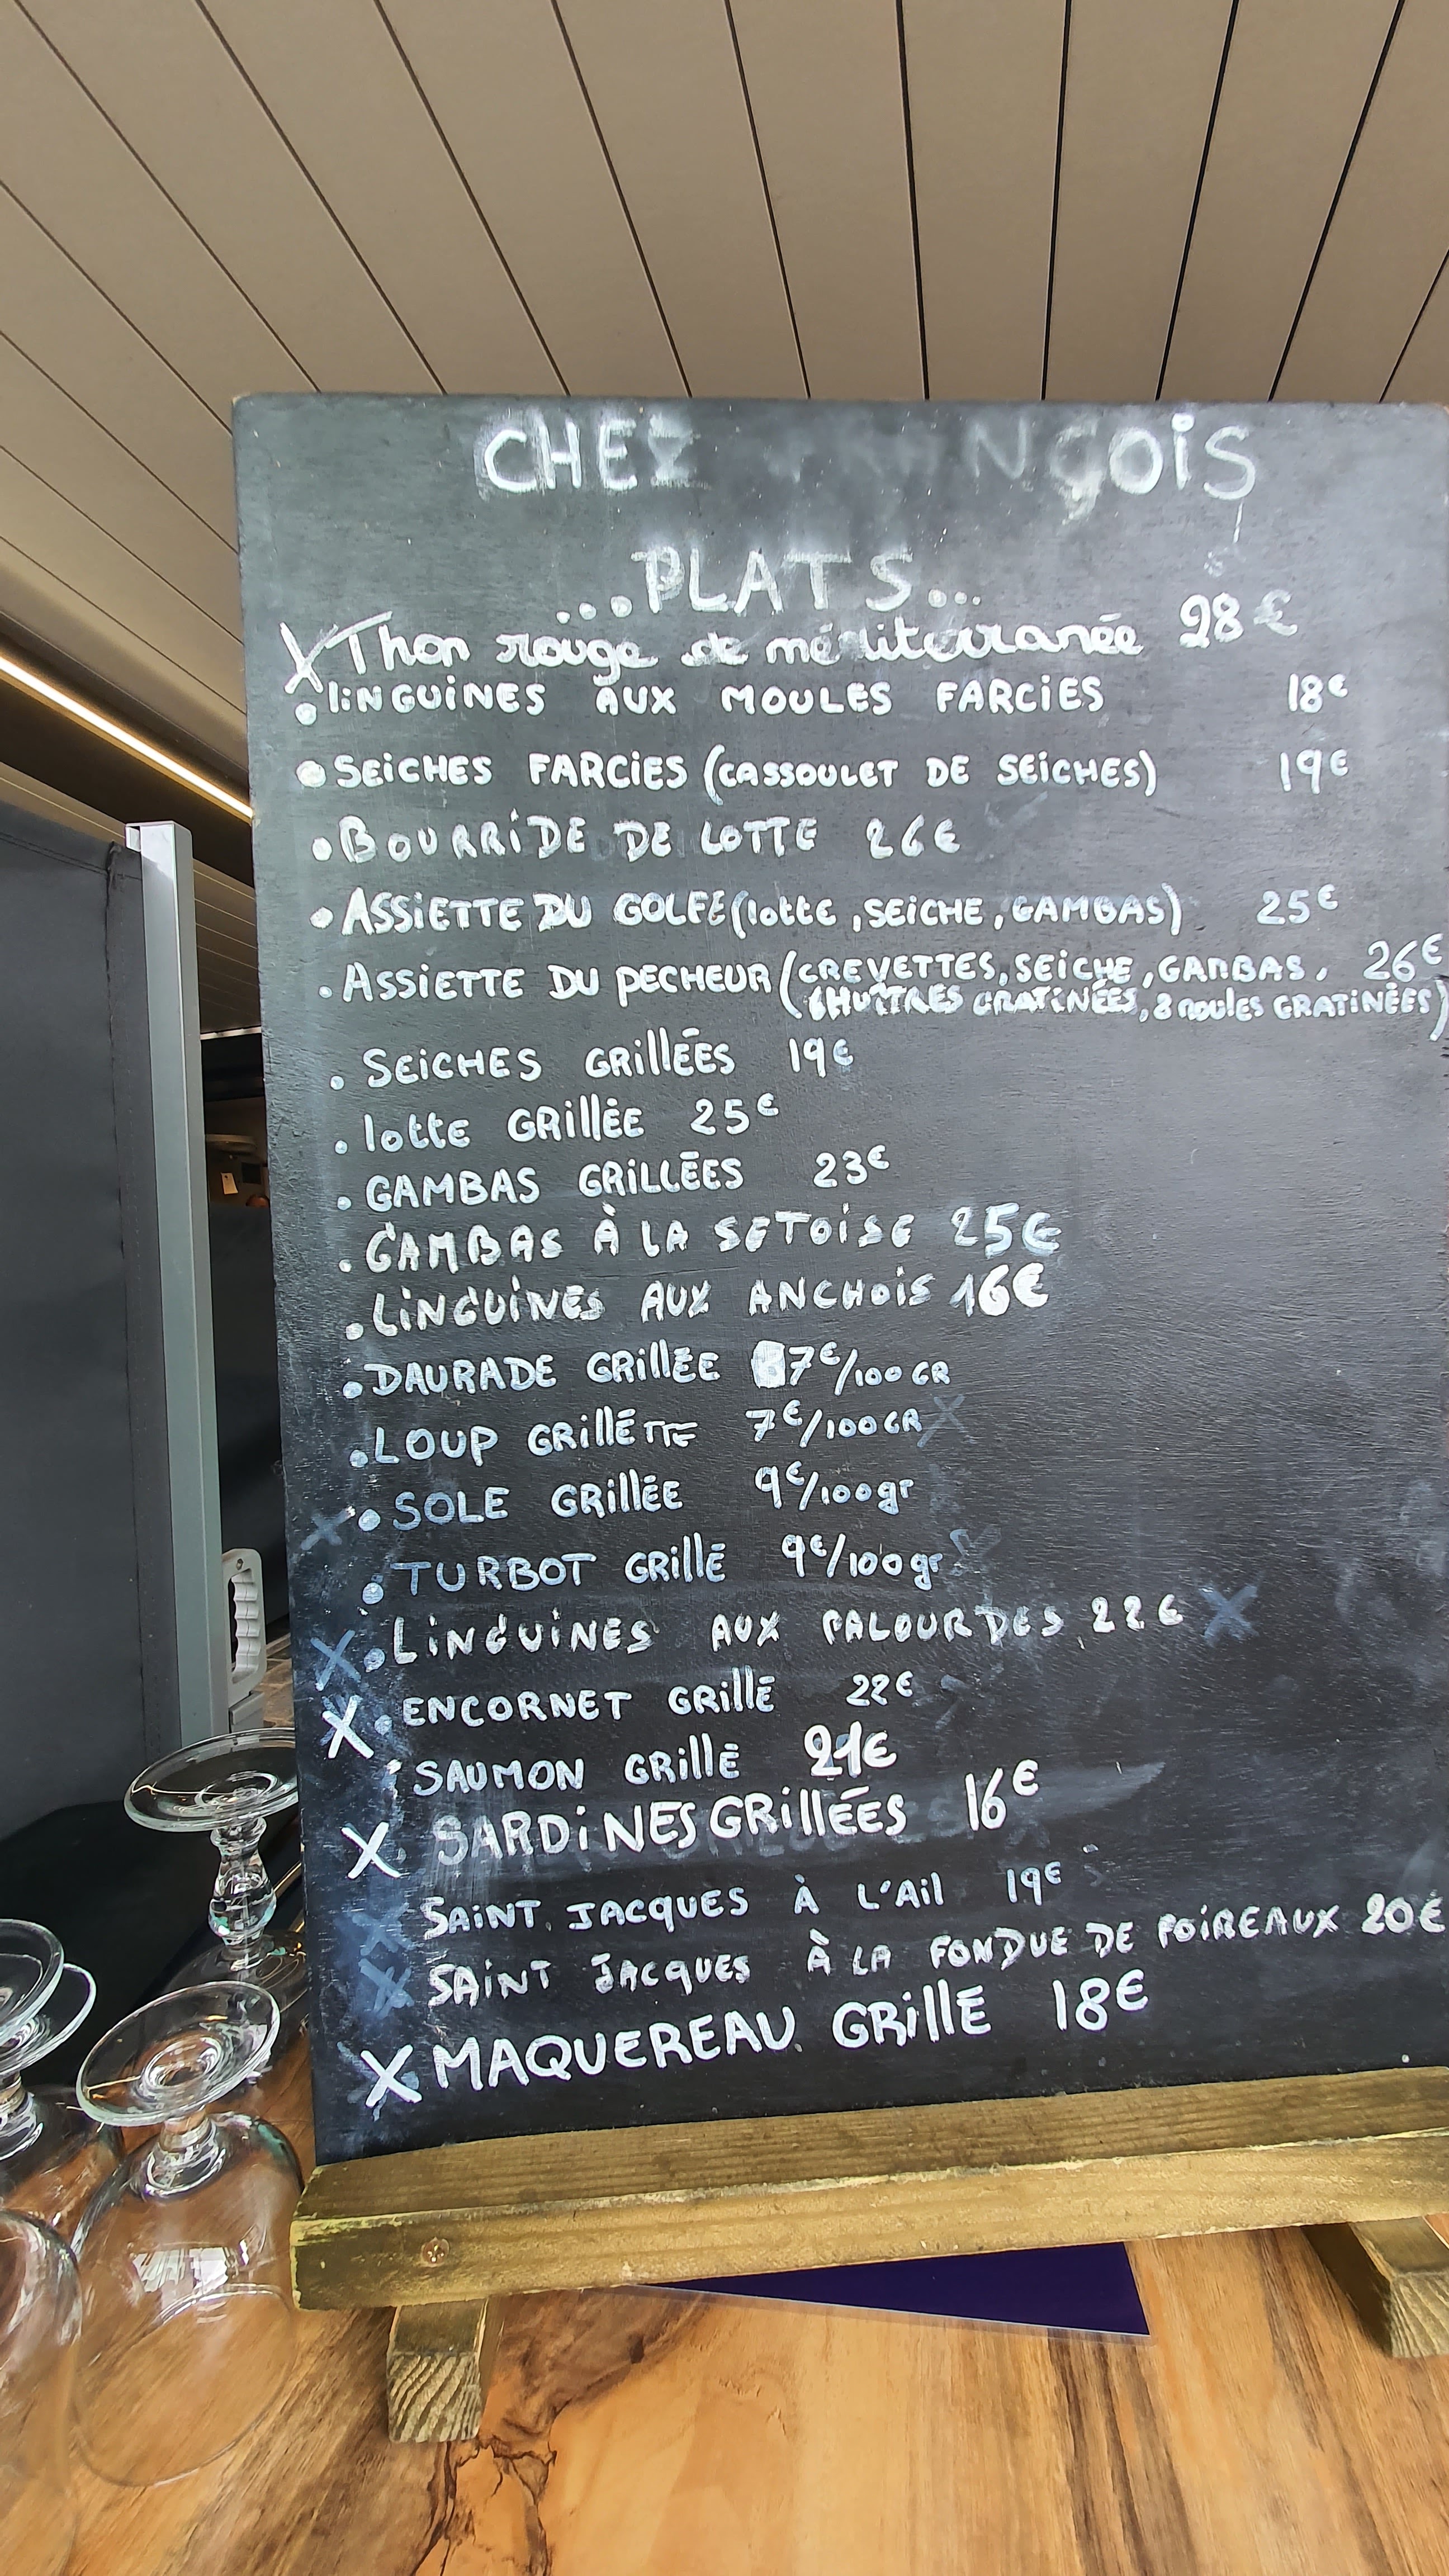 CHEZ FRANÇOIS
...PLATS...
X Thon rouge de méditerranée 28€
• liNGUiNES AUX MOULES FARCiES 18€
• SEiCHES FARCiES (CASSOULET DE SEiCHES) 19€
• BOURRiDE DE LOTTE 26€
• ASSiETTE DU GOLFE (lotte, SEiCHE, GAMBAS) 25€
• ASSiETTE DU PECHEUR (CREVETTES, SEiCHE, GAMBAS, 26€
6 HUÎTRES GRATiNÉES, 8 MOULES GRATiNÉES)
• SEiCHES GRilléES 19€
• lotte GRilléE 25€
• GAMBAS GRiLLÉES 23€
• GAMBAS À LA SETOiSE 25€
• LiNGUiNES AUX ANCHOiS 16€
• DAURADE GRilléE 7€/100GR
• LOUP GRillé 7€/100GR X
X • SOLE GRilléE 9€/100gr
• TURBOT GRillé 9€/100gr
X • LiNGUiNES AUX PALOURDES 22€ X
X • ENCORNET GRillé 22€
• SAUMON GRillé 21€
X SARDiNES GRilléES 16€
X SAiNT JACQUES À L'Ail 19€
X SAiNT JACQUES À LA FONDUE DE POiREAUX 20€
X MAQUEREAU GRillÉ 18€